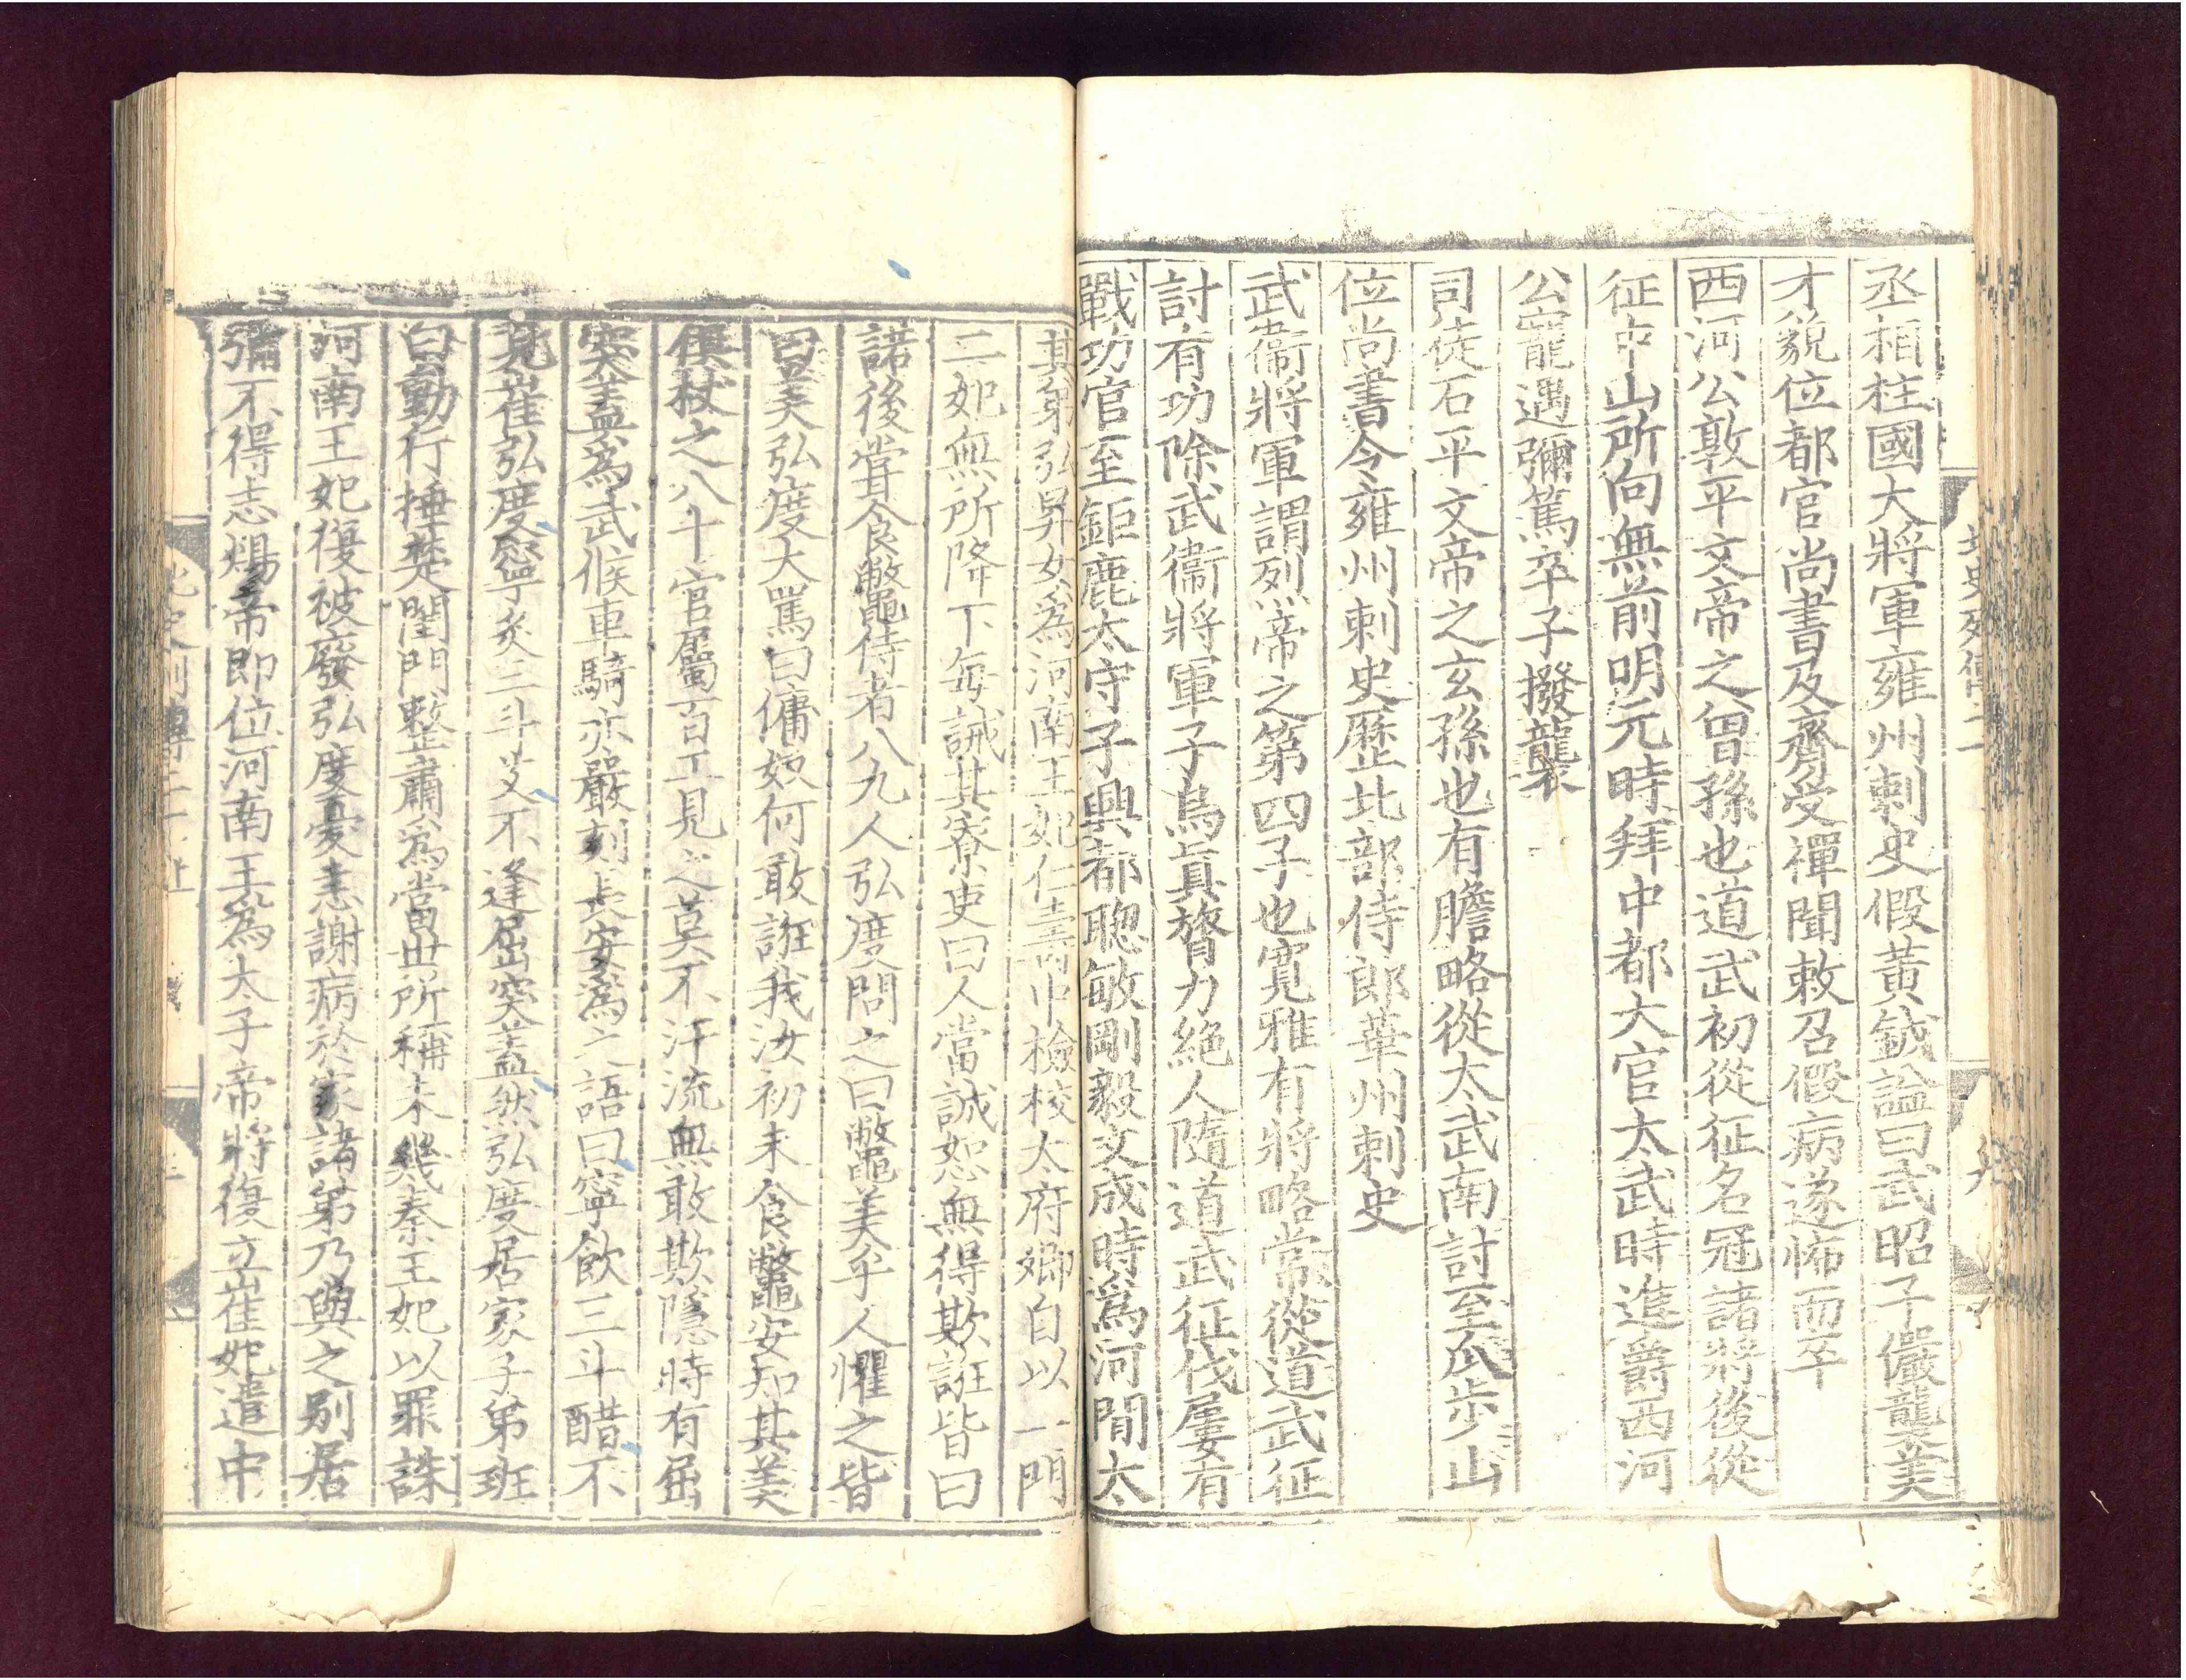 丞相柱國大將軍雍州刺史假黃鉞謚曰武昭子儼襲美
才貌位都官尚書及齊受禪聞敕召假病遂怖而卒
西河公敦平文帝之曾孫也道武初從征名冠諸將後從
征中山所向無前明元時拜中都大官太武時進爵西河
公寵遇彌篤卒子撥襲
司徒石平文帝之玄孫也有膽略從太武南討至瓜步山
位尚書令雍州刺史歷北部侍郎華州刺史
武衛將軍謂烈帝之第四子也寬雅有將略常從道武征
討有功除武衛將軍子烏真膂力絕人隨道武征伐屢有
戰功官至鉅鹿太守子興都聰敏剛毅文成時爲河間太
其弟弘昇女爲河南王妃仁壽中檢校太府卿自以一門
二妃無所降下每誡其寮吏曰人當誠恕無得欺誑皆曰
諾後甞食鼈侍者八九人弘度問之曰鼈美乎人懼之皆
曰美弘度大罵曰傭奴何敢誑我汝初未食鼈安知其美
俱杖之八十官屬百工見之莫不汗流無敢欺隱時有屈
突蓋爲武候車騎亦嚴刻長安爲之語曰寧飲三斗醋不
見崔弘度寧炙三斗艾不逢屈突蓋然弘度居家子弟班
白動行捶楚閨門整肅爲當世所稱未幾秦王妃以罪誅
河南王妃復被廢弘度憂恚謝病於家諸弟乃與之别居
彌不得志煬帝即位河南王爲太子帝將復立崔妃遣中